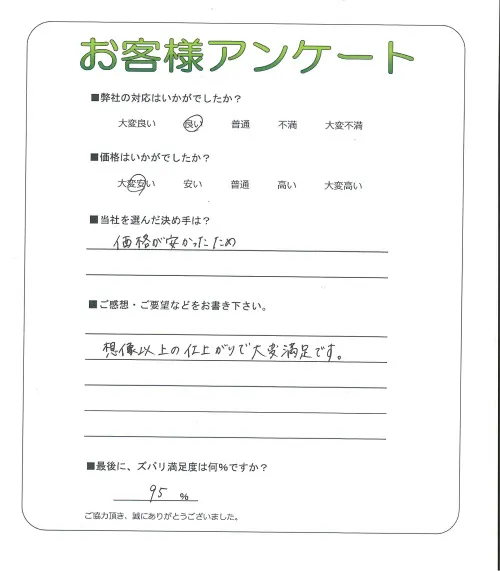 お客様アンケート
■弊社の対応はいかがでしたか？
大変良い 良い 普通 不満 大変不満
■価格はいかがでしたか？
大変安い 安い 普通 高い 大変高い
■当社を選んだ決め手は？
価格が安かったため
■ご感想・ご要望などをお書き下さい。
想像以上の仕上がりで大変満足です。
■最後に、ズバリ満足度は何％ですか？
95 %
ご協力頂き、誠にありがとうございました。